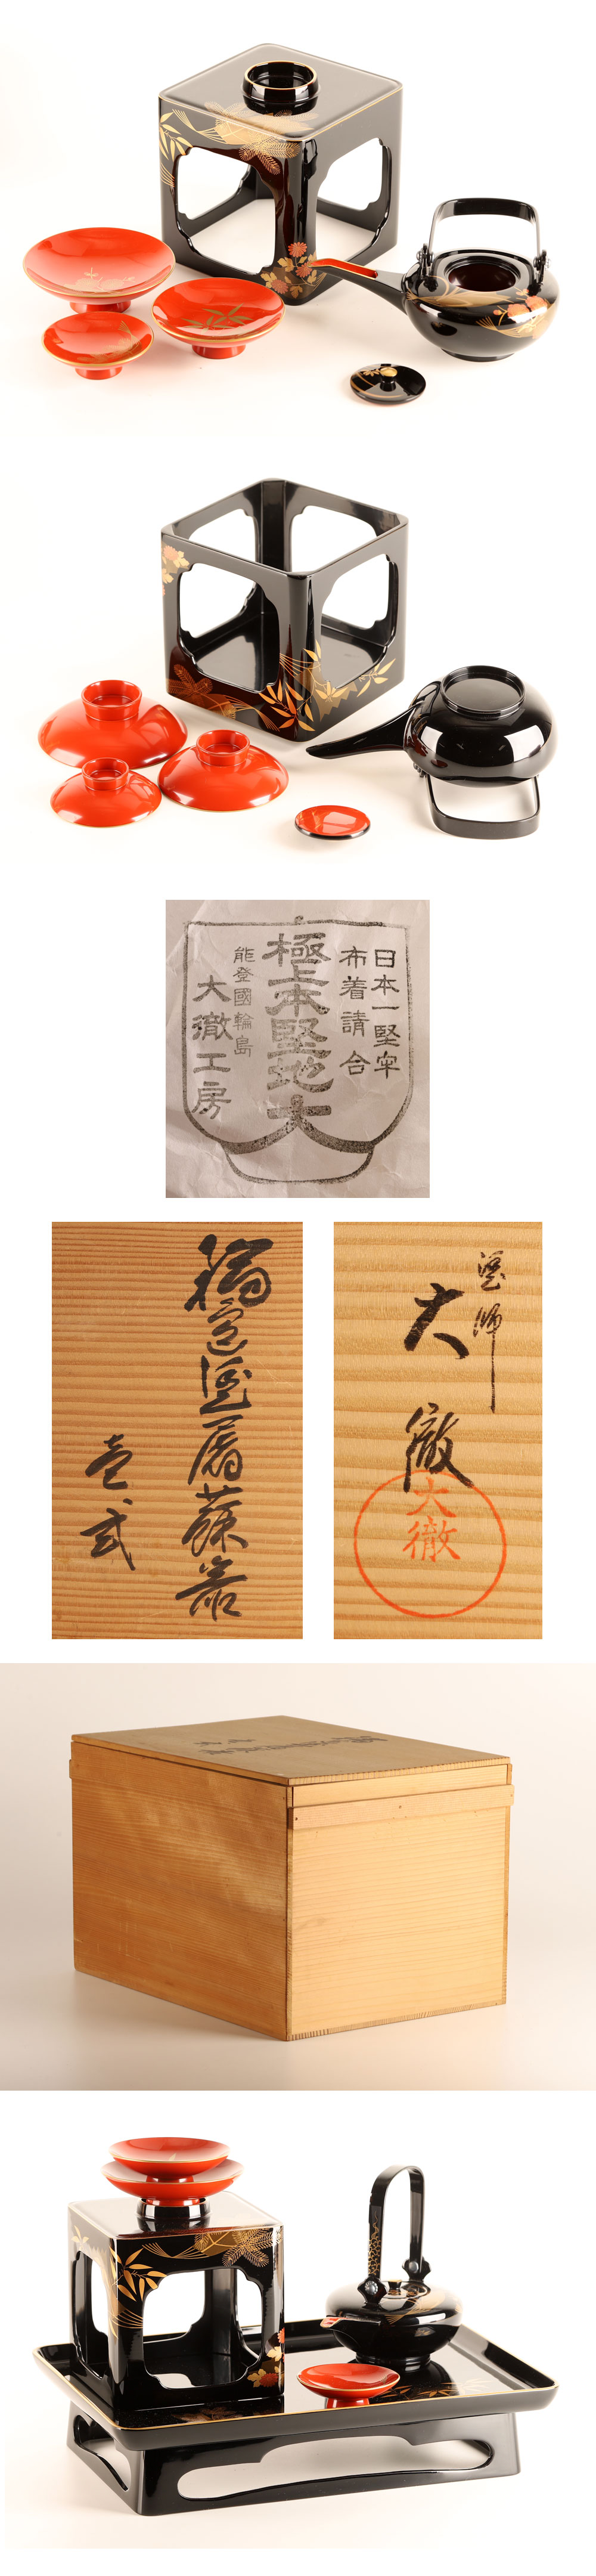 日本一堅牢
布着請合
極上本堅地大
能登國輪島
大徹工房
輪島塗屠蘇器
壱式
塗師
大徹
大徹